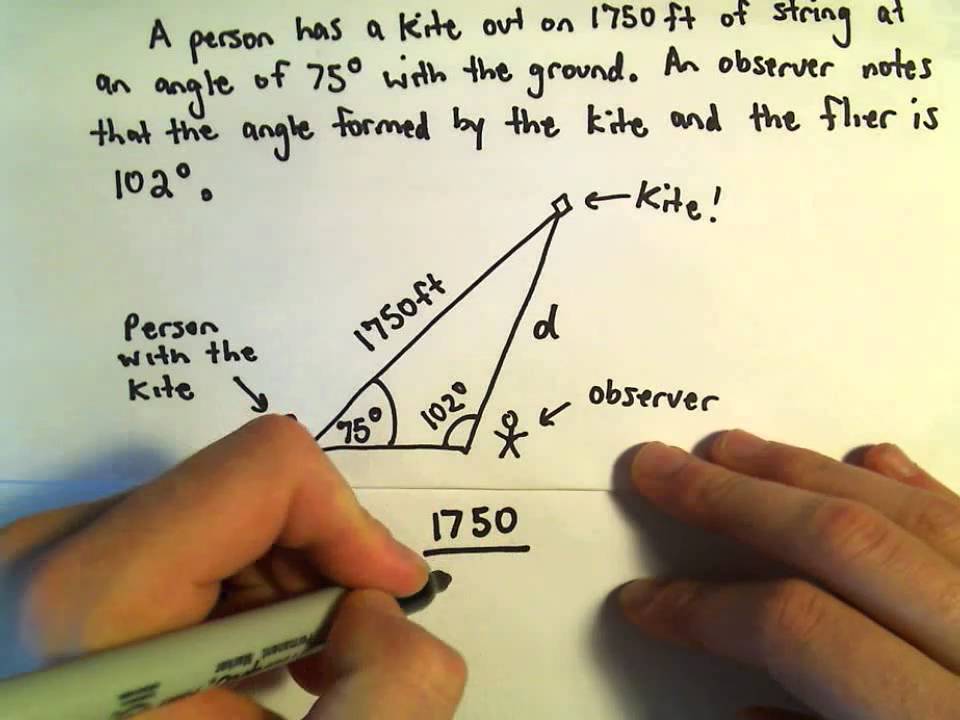 A person has a kite out on 1750 ft of string at
an angle of 75° with the ground. An observer notes
that the angle formed by the kite and the flier is
102°.
← Kite!
1750ft
d
Person
with the
Kite
75°
102°
observer
1750
Permanent Marker